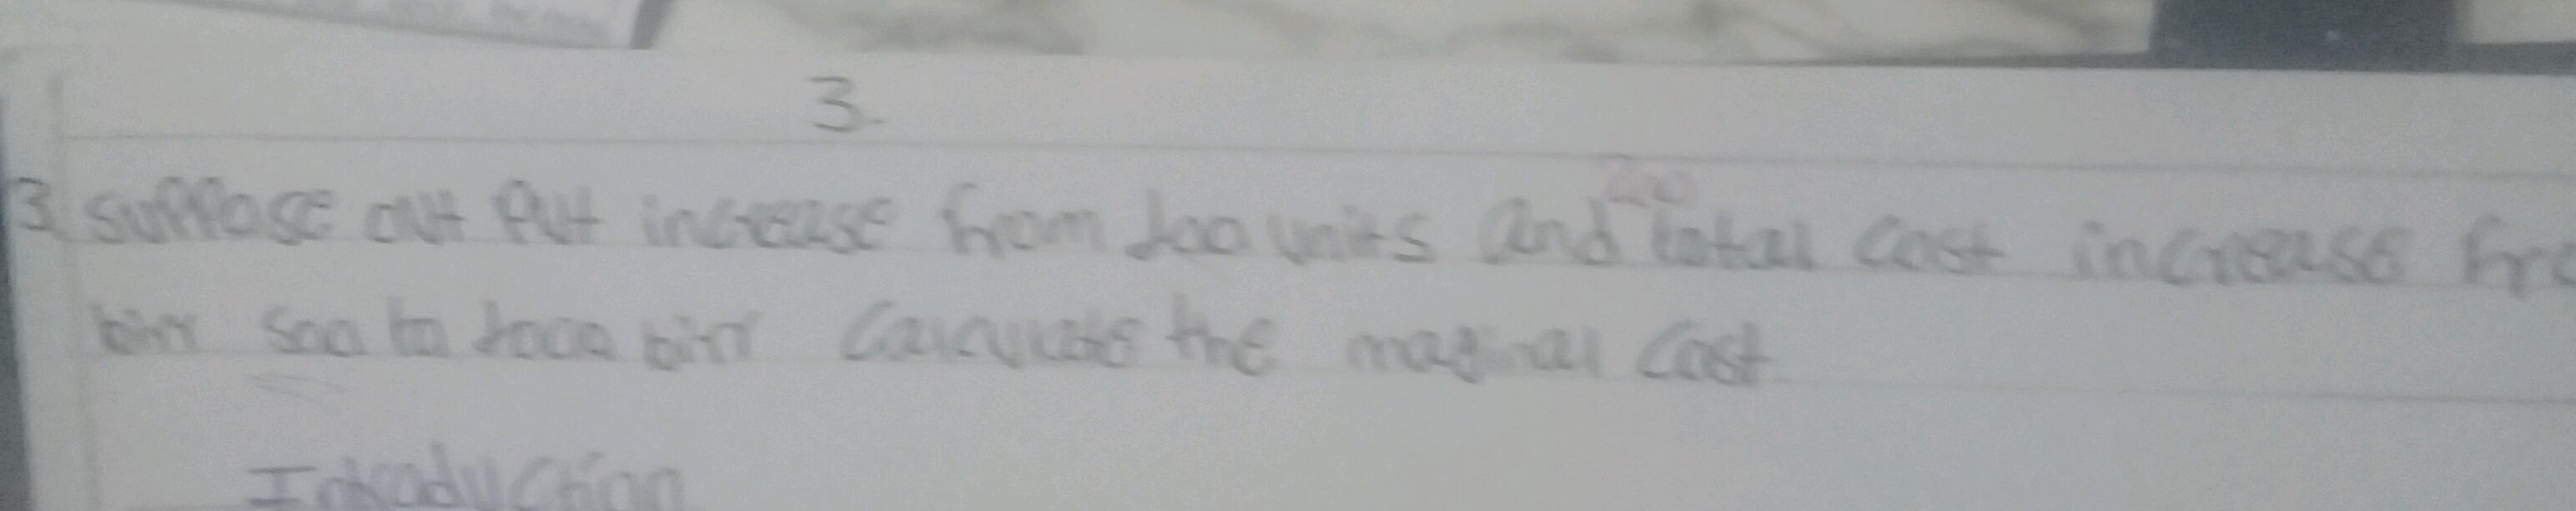 3.
3. suppose out put increase from 100 units and total cost increase fro
birr 500 to 1000 birr calculate the maginal cost
Introduction